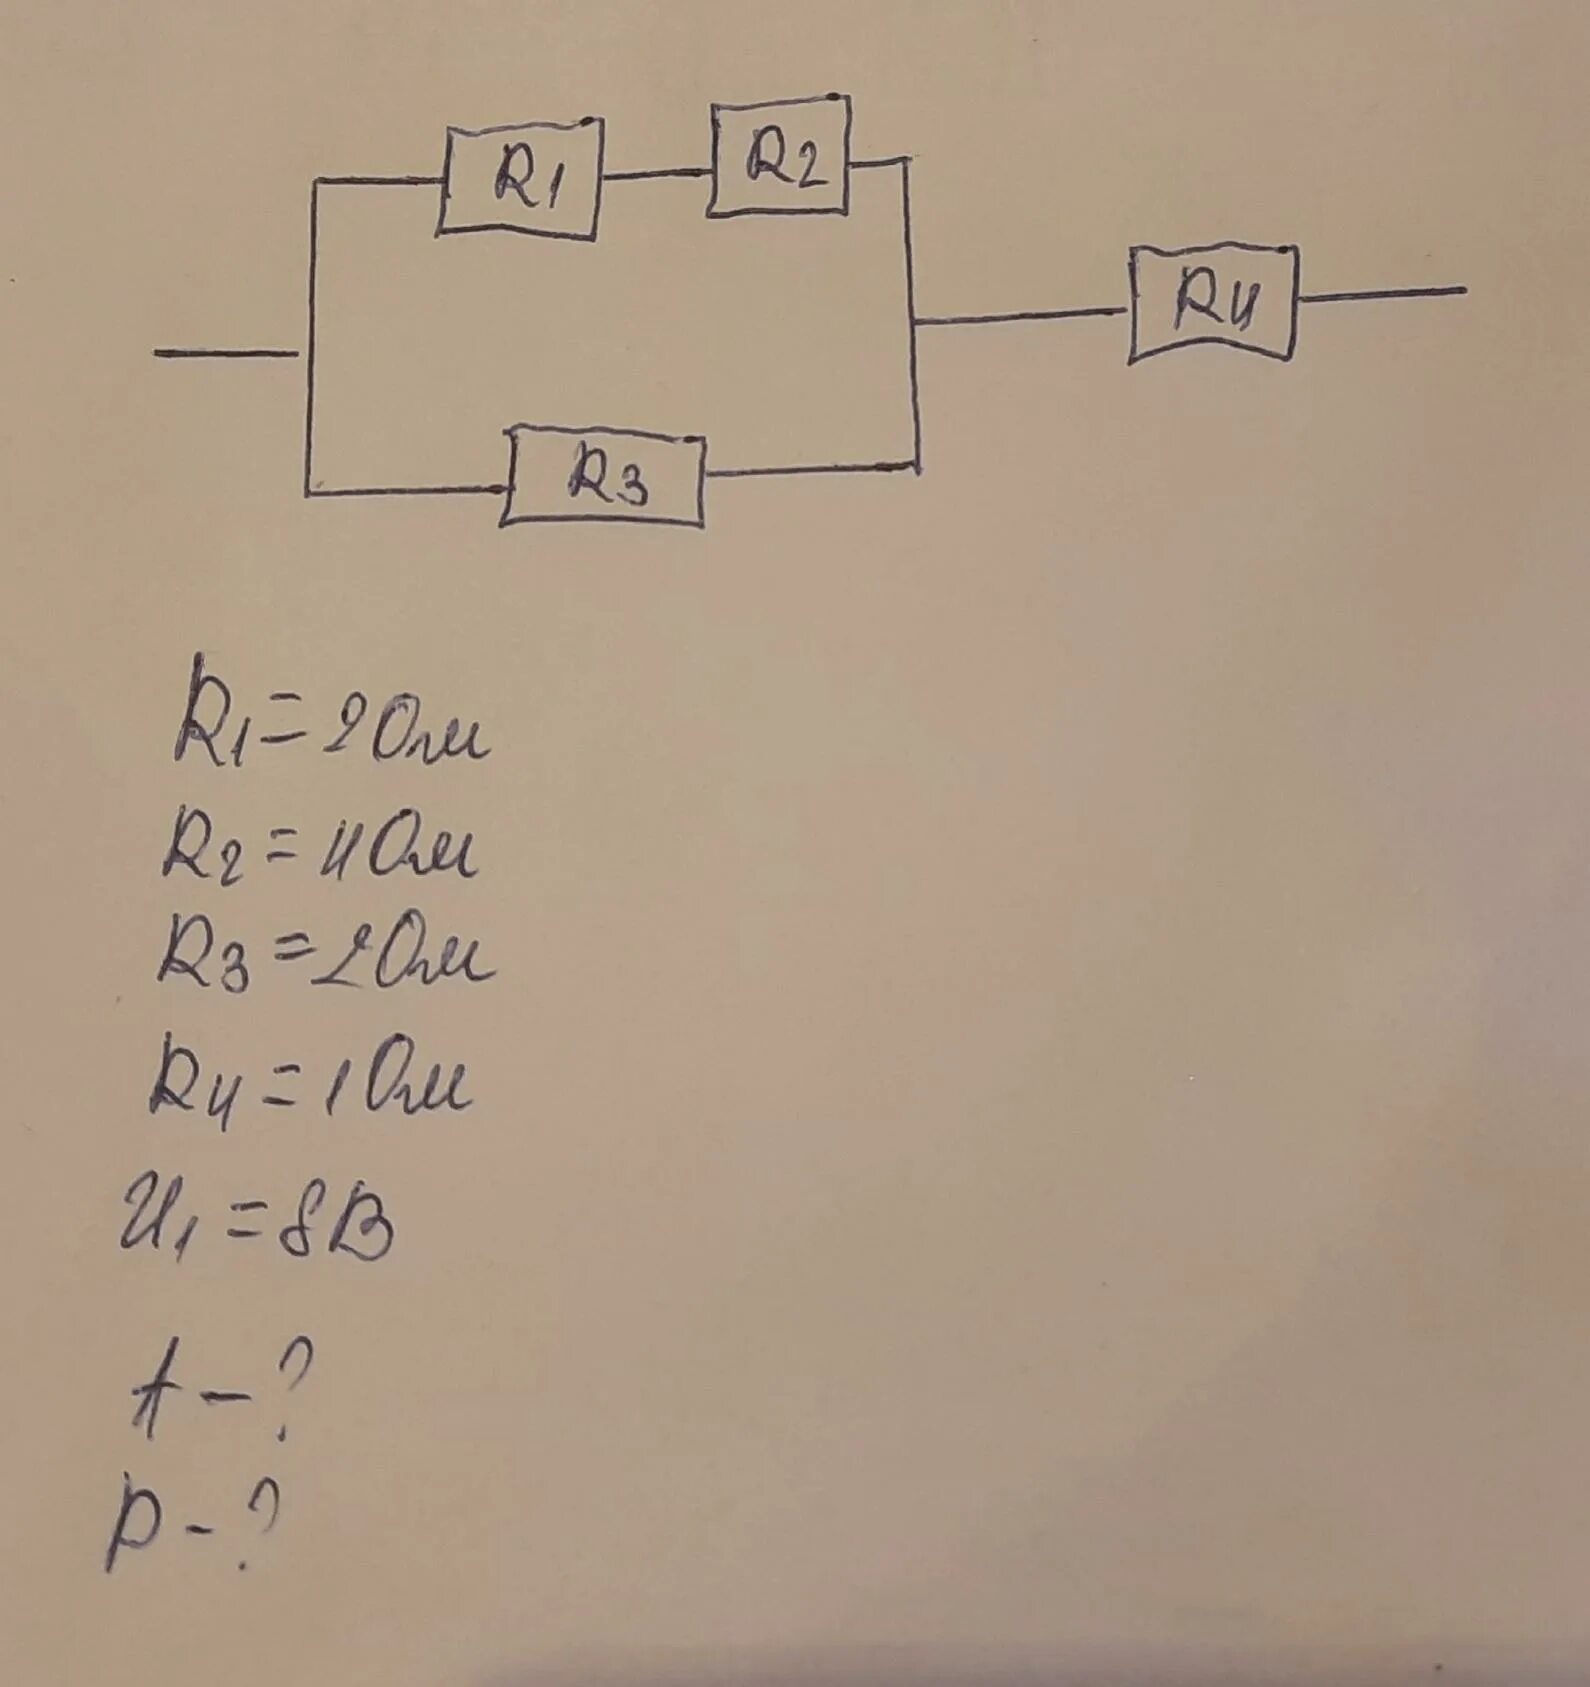 R1 R2
R4
R3
R1 = 2 Ом
R2 = 4 Ом
R3 = 2 Ом
R4 = 1 Ом
U1 = 8 В
A - ?
P - ?